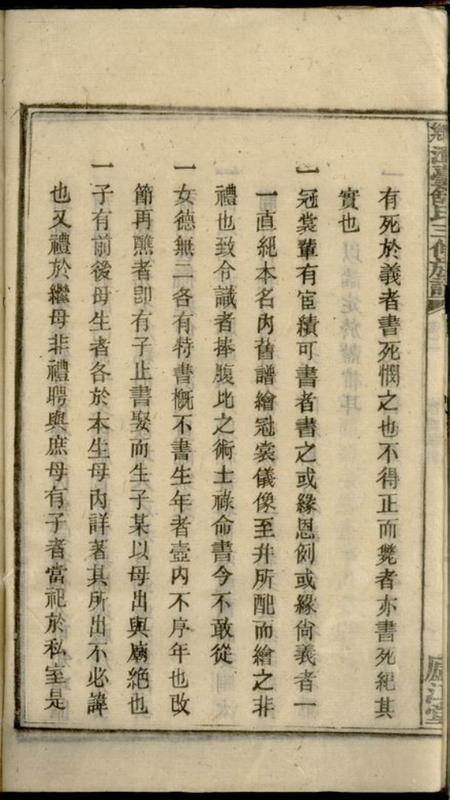 一有死於義者書死憫之也不得正而斃者亦書死紀其
實也
一冠裳輩有宦績可書者書之或緣恩例或緣尙義者一
一直紀本名內舊譜繪冠裳儀像至并所配而繪之非
禮也致令識者捧腹比之術士祿命書今不敢從
一女德無二各有特書槪不書生年者壼內不序年也改
節再醮者卽有子止書娶而生子某以母出與廟絶也
一子有前後母生者各於本生母內詳著其所出不必諱
也又禮於繼母非禮聘與庶母有子者當祀於私室是
三修族譜
廬江堂